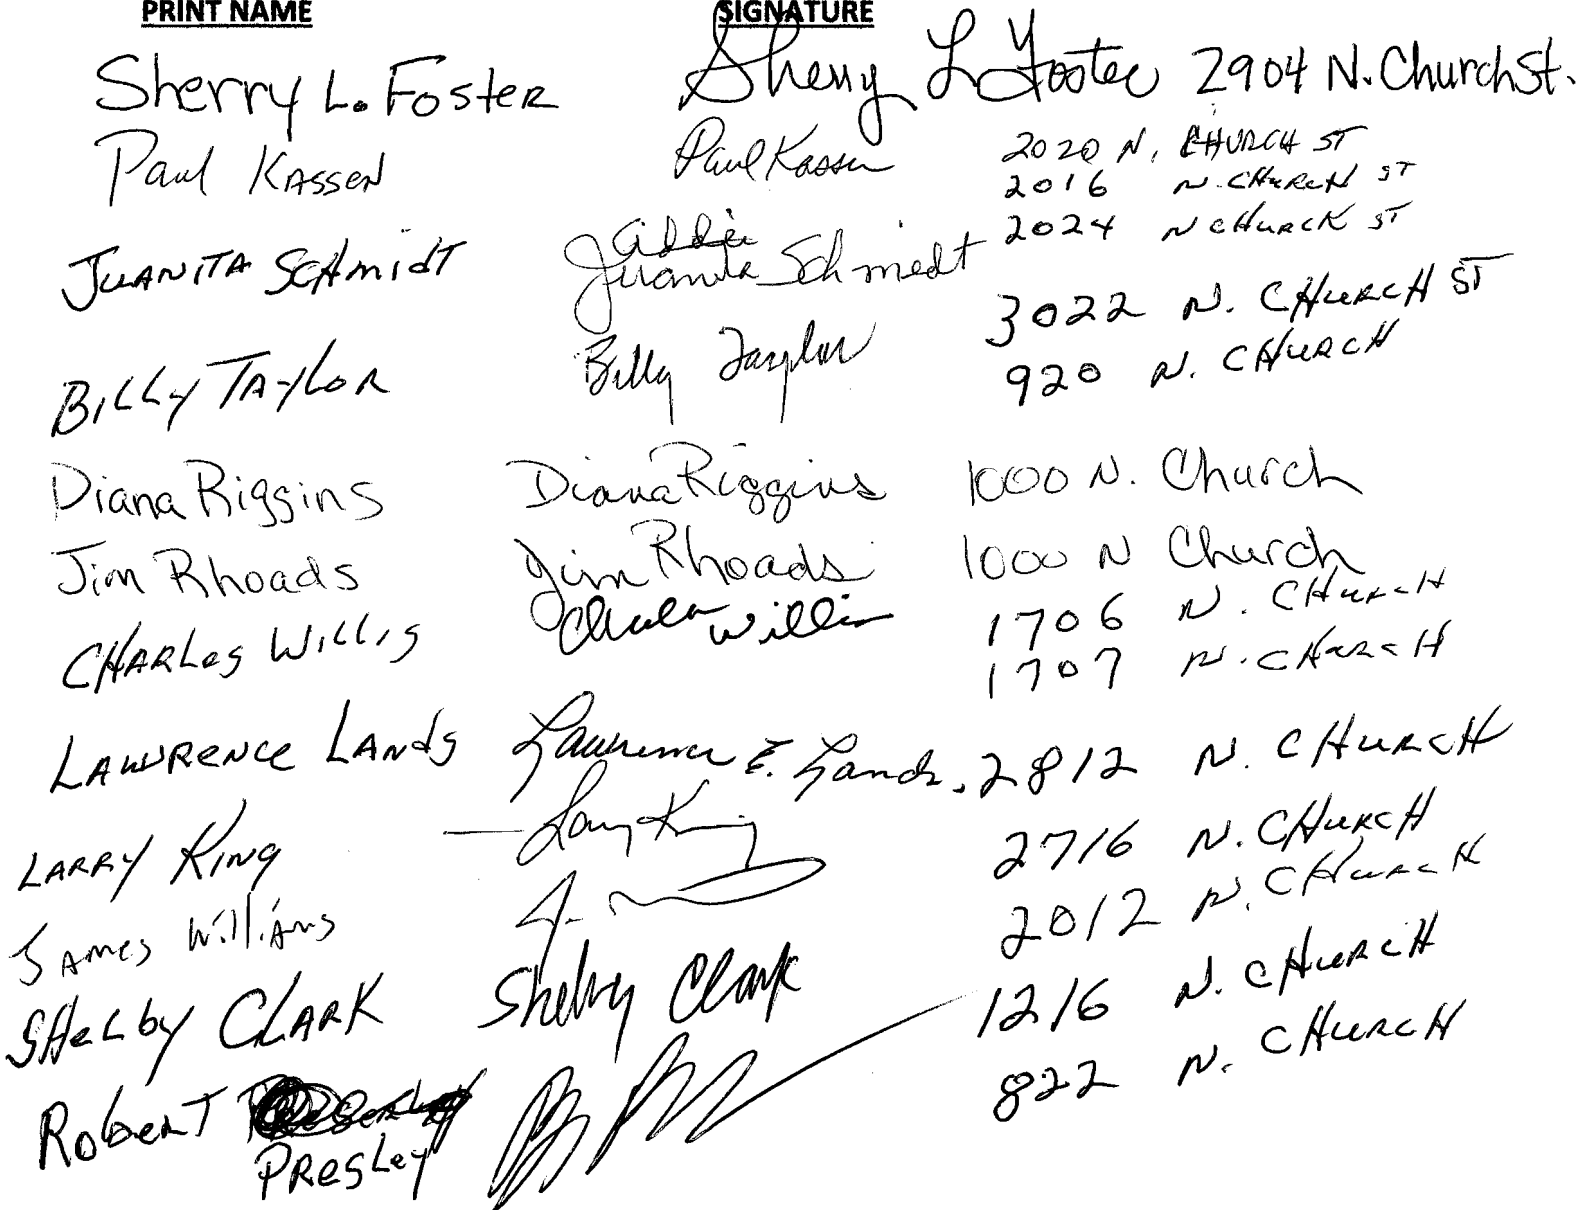 PRINT NAME SIGNATURE
Sherry L. Foster Sherry L Foster 2904 N. Church St.
Paul Kassen Paul Kassen 2020 N. CHURCH ST
2016 N. CHURCH ST
2024 N CHURCH ST
JUANITA SCHmidT Juanita Schmidt
3022 N. CHURCH ST
BILLY TAYLOR Billy Taylor 920 N. CHURCH
Diana Riggins Diana Riggins 1000 N. Church
Jim Rhoads Jim Rhoads 1000 N Church
CHARLes WILLIS Charles Willis 1706 N. CHURCH
1707 N. CHURCH
LAWRENCE LANds Lawrence E. Lands. 2812 N. CHURCH
LARRY KING Larry King 2716 N. CHURCH
JAmes WilliAms 2012 N. CHURCH
SHeLby CLARK Shelby Clark 1216 N. CHURCH
RobeRT 822 N. CHURCH
PResLey